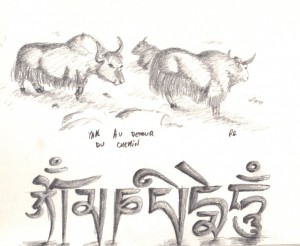 YAK AU DETOUR
DU CHEMIN
ཨོཾ མ ཎི པ དྨེ ཧཱུྃ